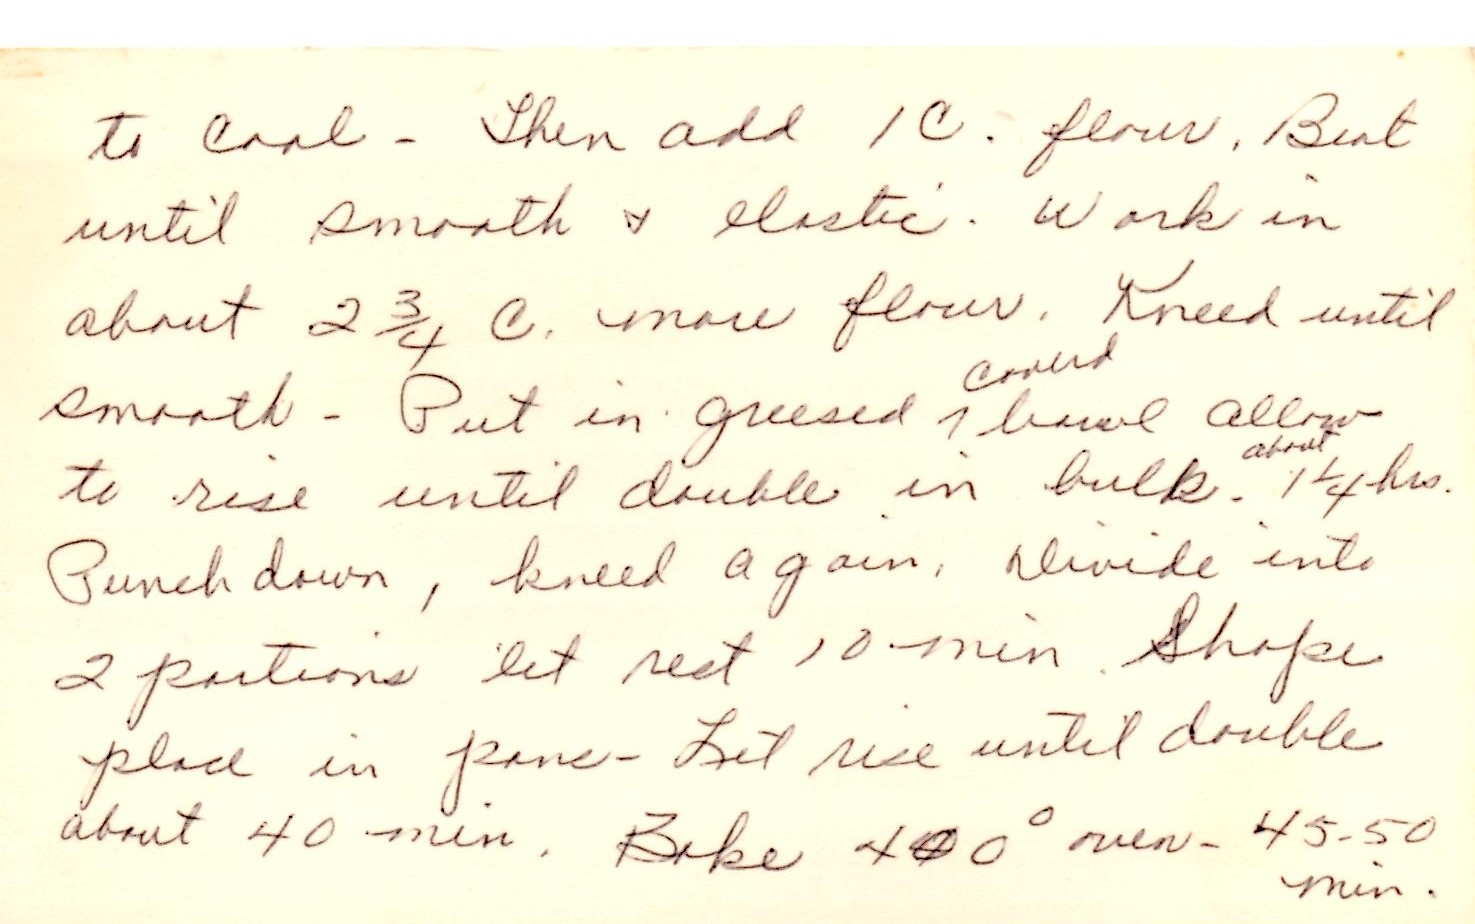 to cool - Then add 1 C. flour. Beat
until smooth & elastic. Work in
about 2 3/4 C. more flour. Kneed until
smooth - Put in greesed coverd bowl allow
to rise until double in bulk. about 1 1/4 hrs.
Punch down, kneed again. Divide into
2 portions let rest 10 min. Shape
place in pans - Let rise until double
about 40 min. Bake 400° oven - 45-50
min.